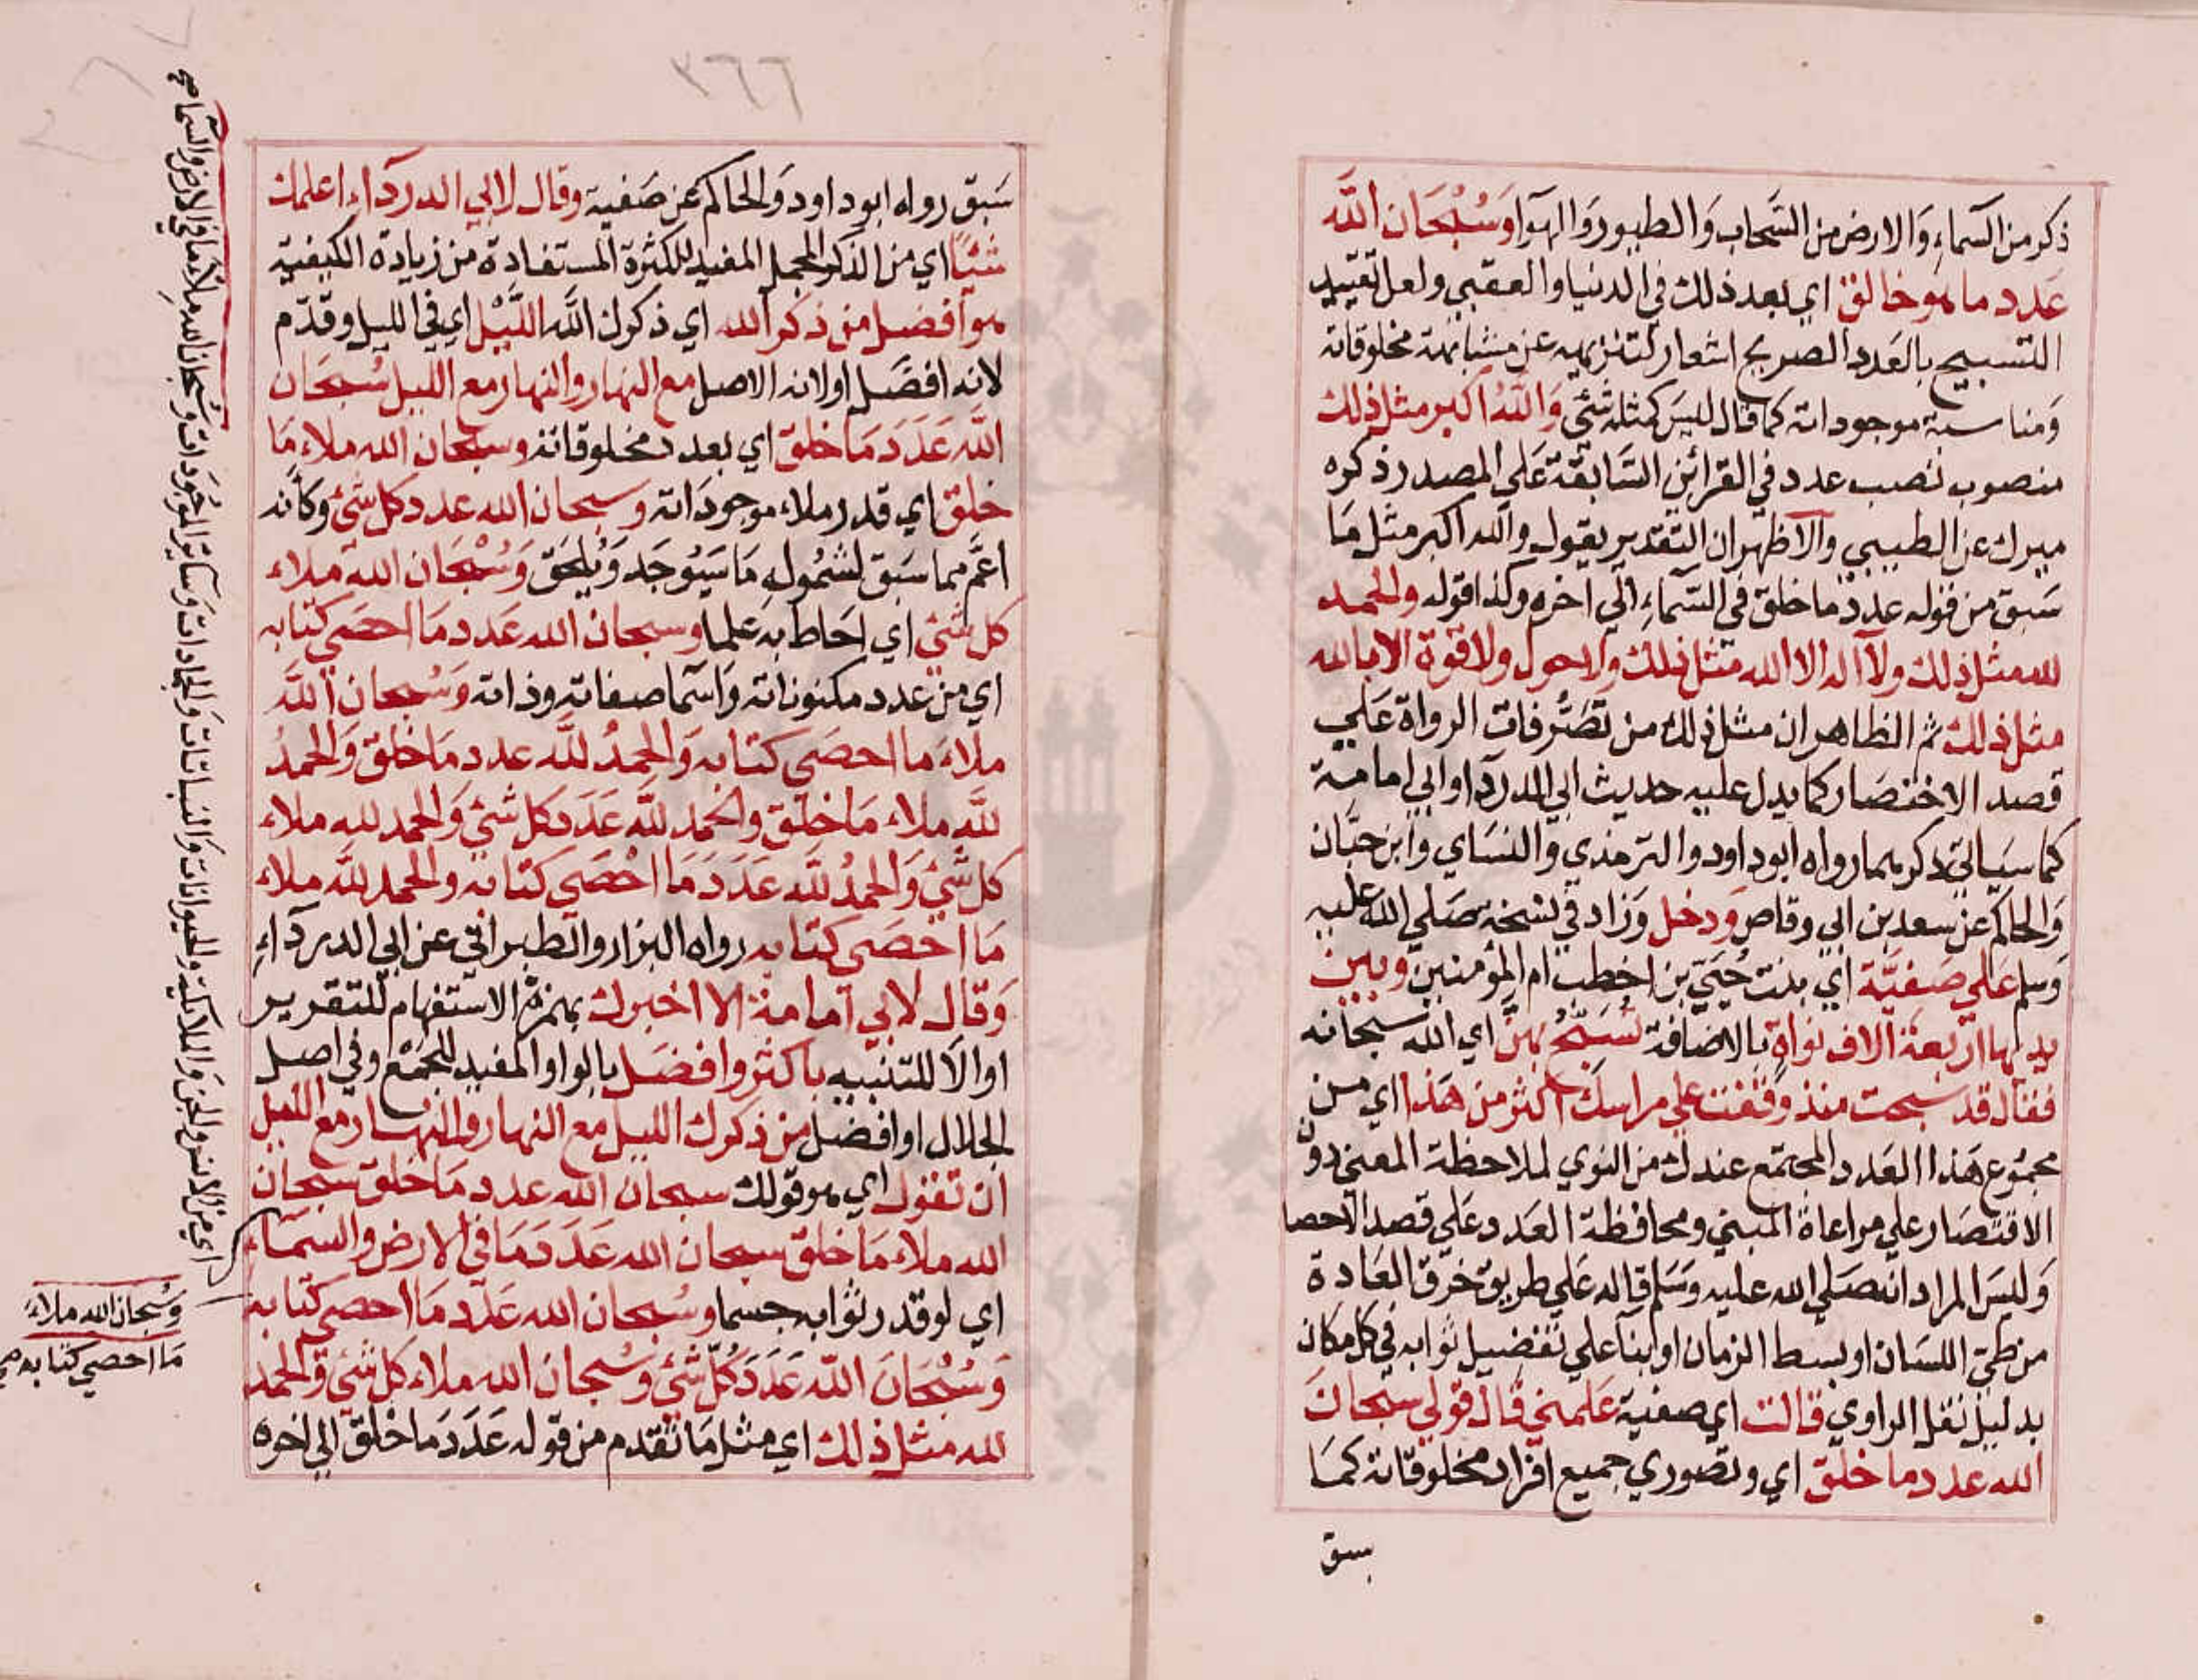 ذكر من السماء والارض من السحاب والطيور والهوا وسبحان الله
عدد ما هو خالق اي بعد ذلك في الدنيا والعقبي ولعل تقييد
التسبيح بالعدد الصريح اشعار لتنزيهه عن مشابهة مخلوقاته
ومناسبة موجوداته كما قال ليس كمثله شئ والله اكبر مثل ذلك
منصوب نصب عدد في القرائن السابقة علي المصدر ذكره
ميرك عن الطيبي والاظهر ان التقدير يقول والله اكبر مثل ما
سبق من قوله عدد ما خلق في السماء الي اخره وكذا قوله والحمد
لله مثل ذلك ولا اله الا الله مثل ذلك ولا حول ولا قوة الا بالله
مثل ذلك ثم الظاهر ان مثل ذلك من تصرفات الرواة علي
قصد الاختصار كما يدل عليه حديث ابي الدرداء وابي امامة
كما سياتي ذكرهما رواه ابو داود والترمذي والنساي وابن حبان
والحاكم عن سعد بن ابي وقاص ودخل وزاد في نسخة صلي الله عليه
وسلم علي صفية اي بنت حيي بن اخطب ام المؤمنين وبين
يديها اربعة الاف نواة بالاضافة تسبح بهن اي الله سبحانه
فقال قد سبحت منذ وقفت علي راسك اكثر من هذا اي من
مجموع هذا العدد المجتمع عندك من النوي لملاحظة المعني دون
الاقتصار علي مراعاة المبني ومحافظة العدد علي قصد الاحصا
وليس المراد انه صلي الله عليه وسلم قاله علي طريق خرق العادة
من طي اللسان او بسط الزمان او بنا علي تفضيل ثوابه في كل مكان
بدليل نقل الراوي قالت اي صفية علمني قال قولي سبحان
الله عدد ما خلق اي وتصوري جميع افراد مخلوقاته كما
سبق
٣٦٦
سبق رواه ابو داود والحاكم عن صفية وقال لابي الدرداء اعلمك
شيئا اي من الذكر المجمل المفيد للكثرة المستفادة من زيادة الكيفية
هو افضل من ذكر الله اي ذكرك الله الليل اي في الليل وقدم
لانه افضل او لانه الاصل مع النهار والنهار مع الليل سبحان
الله عدد ما خلق اي بعدد مخلوقاته وسبحان الله ملاء ما
خلق اي قدر ملاء موجوداته وسبحان الله عدد كل شئ وكأنه
اعم مما سبق لشموله ما سيوجد ويلحق وسبحان الله ملاء
كل شئ اي احاط به علما وسبحان الله عدد ما احصي كتابه
اي من عدد مكنوناته واسما صفاته وذاته وسبحان الله
ملاء ما احصي كتابه والحمد لله عدد ما خلق والحمد
لله ملاء ما خلق والحمد لله عدد كل شئ والحمد لله ملاء
كل شئ والحمد لله عدد ما احصي كتابه والحمد لله ملاء
ما احصي كتابه رواه البزار والطبراني عن ابي الدرداء
وقال لابي امامة الا اخبرك بهمزة الاستفهام للتقرير
او الا للتنبيه باكثر وافضل بالواو المفيد للجمع وفي اصل
الجلال او افضل من ذكرك الليل مع النهار والنهار مع الليل
ان تقول اي هو قولك سبحان الله عدد ما خلق سبحان
الله ملاء ما خلق سبحان الله عدد ما في الارض والسماء
اي لو قدر ثوابه جسما وسبحان الله عدد ما احصي كتابه
وسبحان الله عدد كل شئ وسبحان الله ملاء كل شئ والحمد
لله مثل ذلك اي مثل ما تقدم من قوله عدد ما خلق الي اخره
اي من الانس والجن والملائكة والحيوانات والنباتات والجمادات وسائر الموجودات وسبحان الله ملاء ما في الارض والسما صح
وسبحان الله ملاء
ما احصي كتابه صح